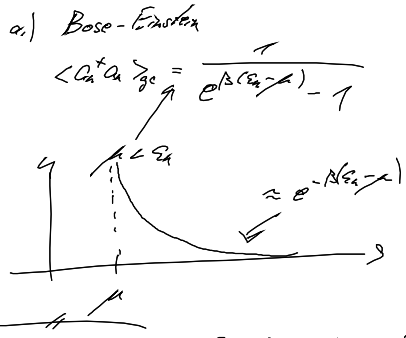 a.) Bose-Einstein
<a_n^+ a_n>_gc = 1 / (e^{β(ε_n-μ)} - 1)
μ < ε_n
≈ e^{-β(ε_n-μ)}
μ